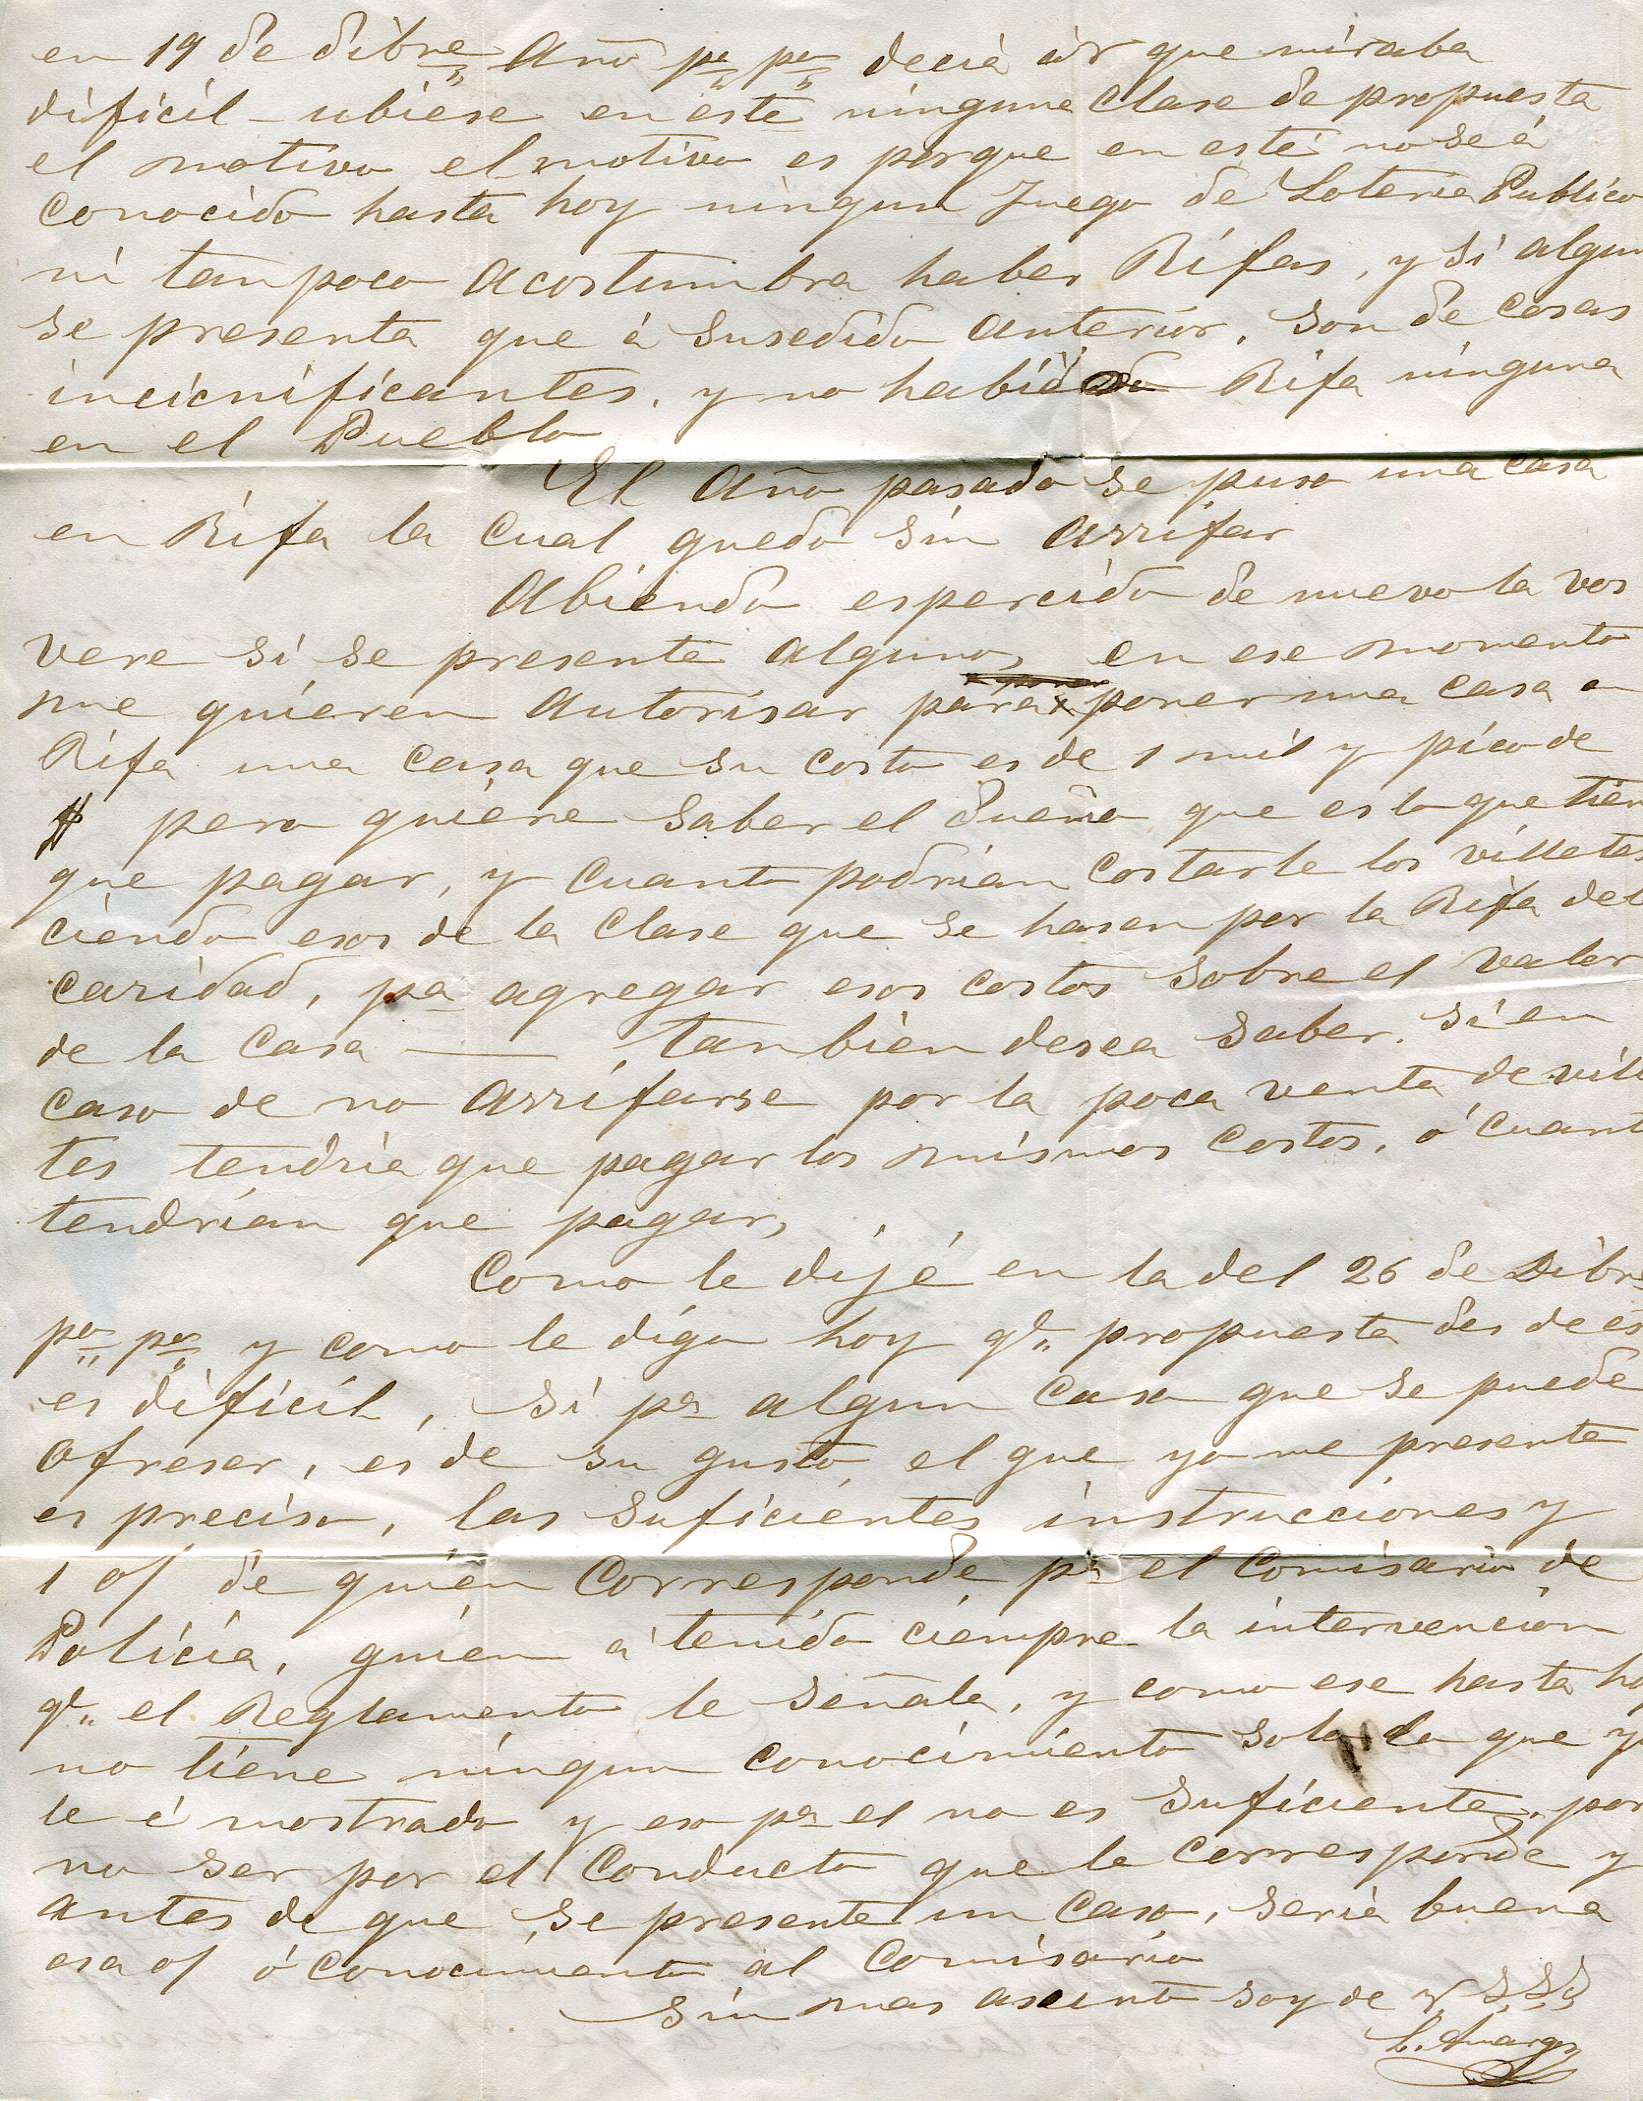 en 19 de Dibre Año po po decia á V que miraba
dificil - ubiese en este ningune Clase de propuesta
el motivo el motivo es porque en este no se á
Conocido hasta hoy ningun Juego de Loteria Publico
ni tanpoco acostumbra haber Rifas, y si algun
se presenta que á Susedido anterior, son de cosas
incicnificantes, y no habido Rifa ninguna
en el Pueblo
El Año pasado se puso una casa
en Rifa la Cual quedo sin arrifar
Abiendo espercido de nuevo la vos
vere si se presente algunos en ese momento
me quieren autorisar para poner una casa en
Rifa una casa que su costo es de 1 mil y pico de
$ pero quiere saber el Dueño que es lo que tien
que pagar, y cuanto podrian costarle los villetes
ciendo esos de la Clase que se hasen por la Rifa del
caridad, pa agregar esos costos sobre el valor
de la Casa — tanbien desea saber. si en
caso de no arrifarse por la poca venta de vill
tes tendria que pagar los mismos costos, ó cuant
tendrian que pagar,
Como le dijé en la del 26 de Dibre
po po y como le digo hoy qe propuesta des de es
es dificil, si pa algun caso que se puede
ofreser, es de su gusto el que yo me presente
es preciso, las suficientes instrucciones y
1 of de quien Corresponde pa el Comisario de
Policia, quien á tenido ciempre la intervencion
qe el Reglamento le señala, y como ese hasta ho
no tiene ningun conocimiento solo lo que yo
le é mostrado y eso pa el no es suficiente, por
no ser por el Conducto que le corresponde y
antes de que se presente un caso, seria buena
esa of ó conocimiento al Comisario
Sin mas asunto soy de V S S S